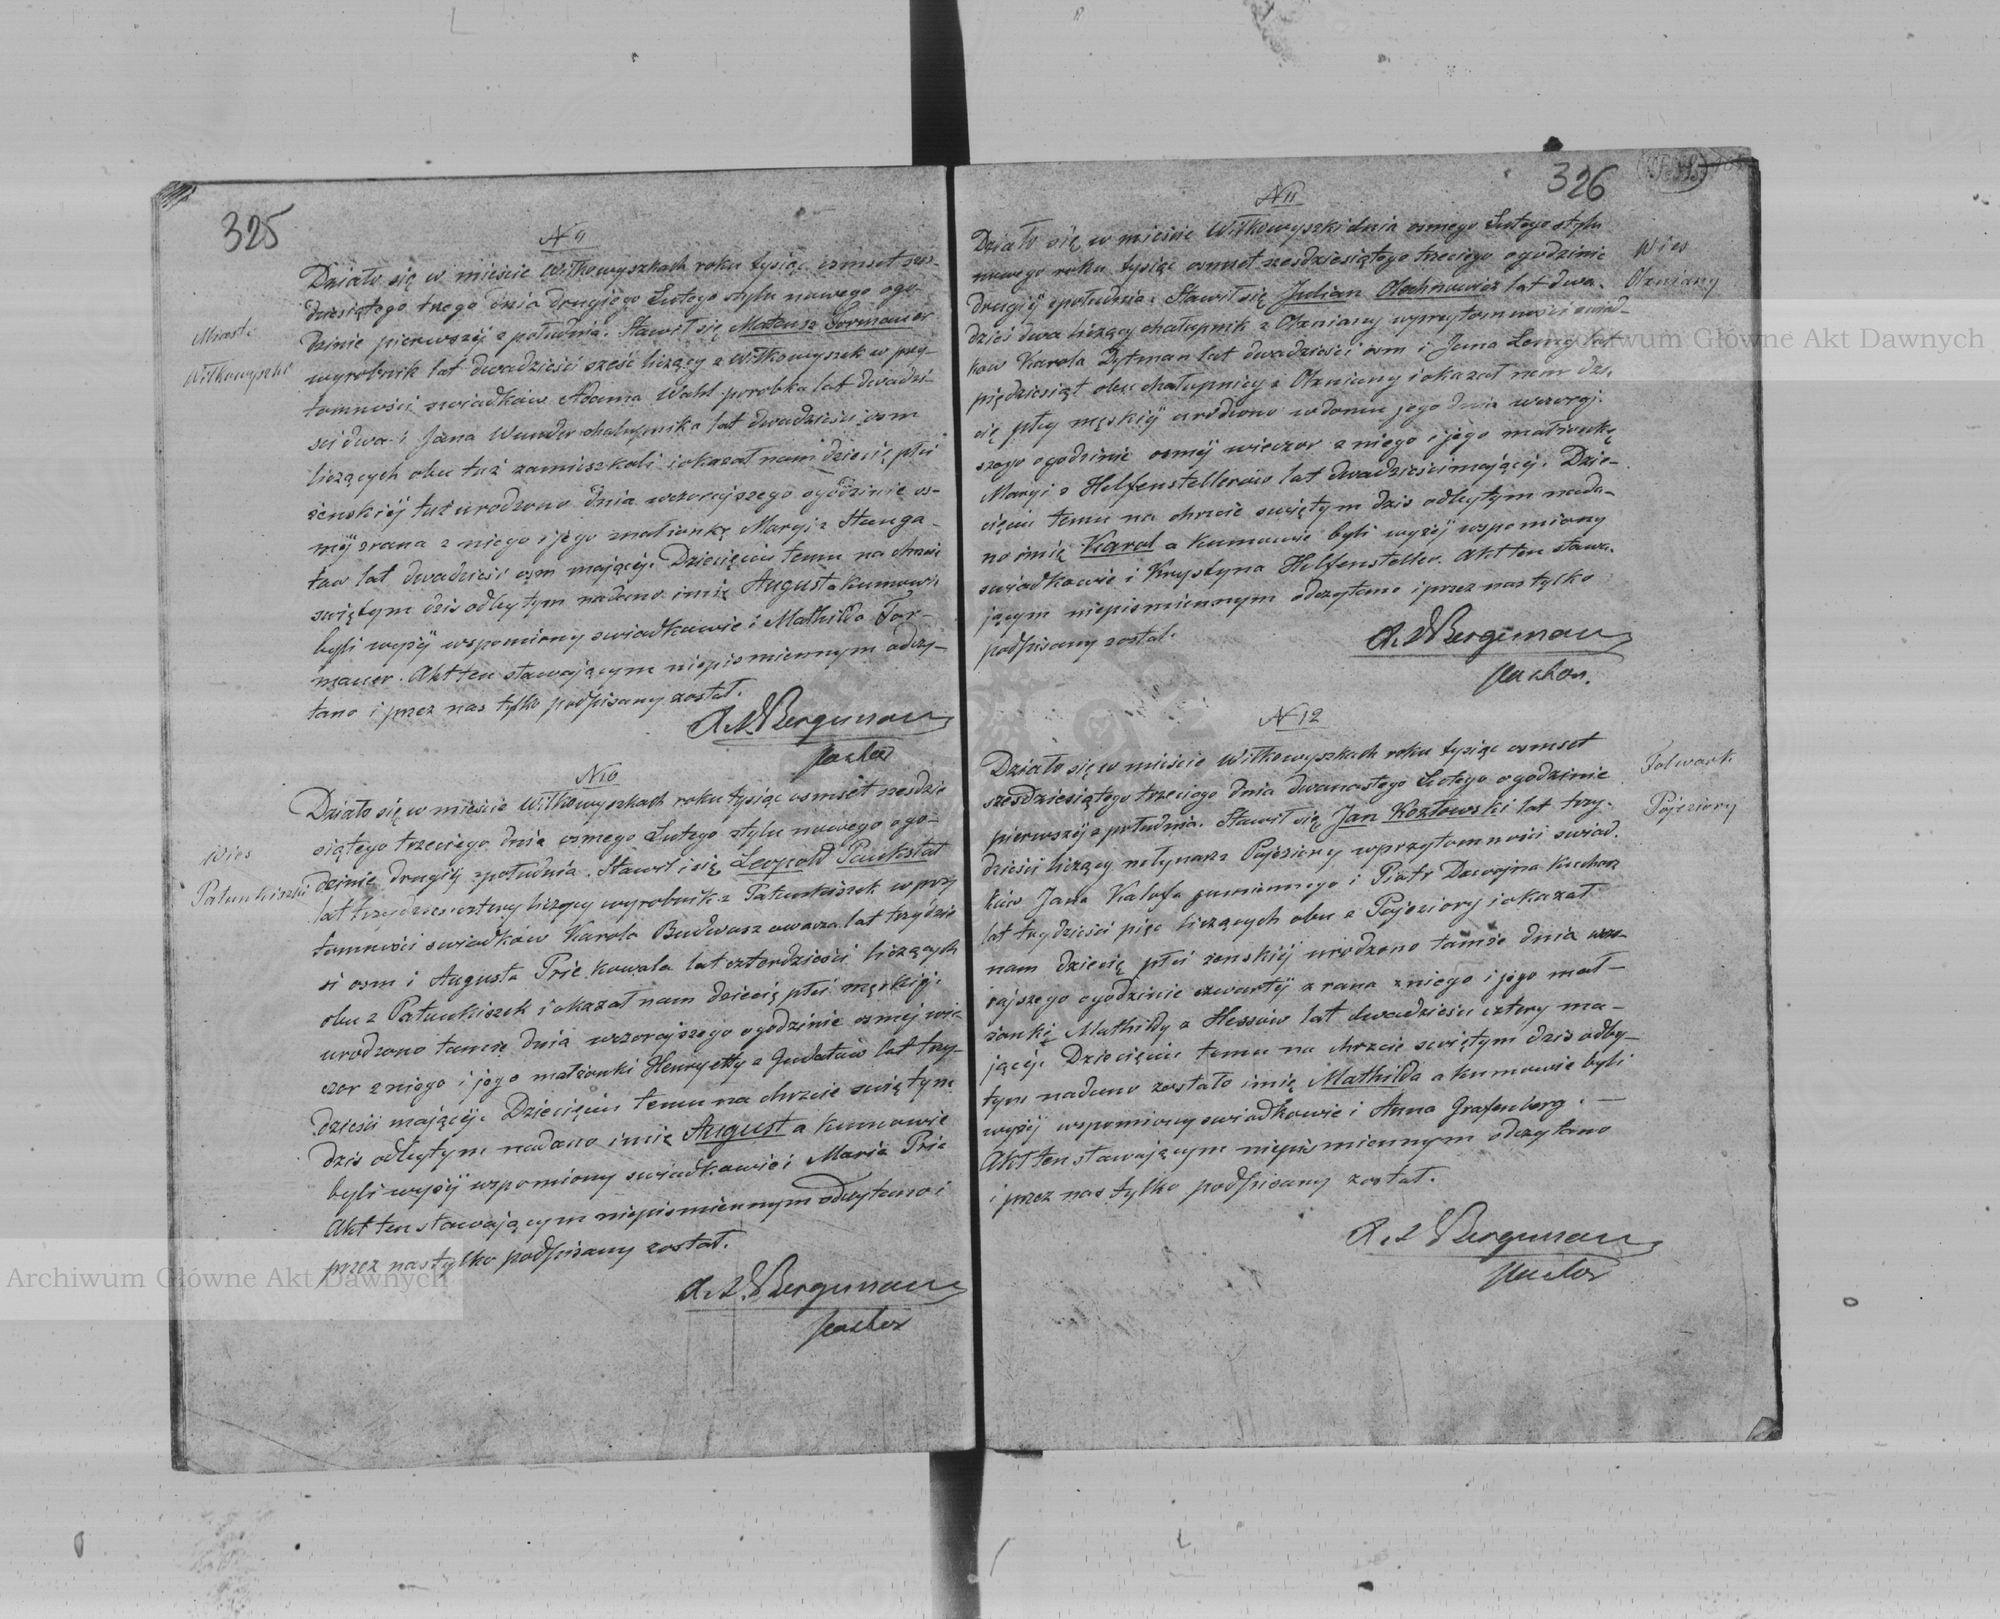 325
N 9
Miasto
Wiłkowyszki
Działo się w mieście Wiłkowyszkach roku tysiąc osmset szes-
dziesiątego trzego dnia drugiego Lutego stylu nowego ogo-
dzinie pierwszéj z południa. Stawił się Mateusz Formauer
wyrobnik lat dwadzieści sześć liczący z Wiłkowyszek w przy-
tomności swiadków Adama Wahl porobka lat dwadzi-
sci dwa i Jana Wunder chałupnika lat dwadzieści osm
liczących obu tuż zamieszkali i okazał nam dziecię płci
żenskiéj tuż urodzono dnia wczorajszego ogodzinie os-
méj zrana z niego i jego małżonkę Maryi z Stanga-
tow lat dwadzieści osm mającéj. Dziecięciu temu na chrzcie
swiętym dzis odbytym nadano imię Augusta kumowie
byli wyżéj wspomiony swiadkowie i Mathilda For-
mauer. Akt ten stawającym niepismiennym odczy-
tano i przez nas tylko podpisany został.
A. Bergmann
pastor
N 10
Wies
Działo się w mieście Wiłkowyszkach roku tysiąc osmset szesdzie
siątego trzeciego dnia osmego Lutego stylu nowego ogo-
dzinie drugiéj z południa. Stawił się Leopold
lat liczący wyrobnik z w przy
tomności swiadków Karola owczarza lat trzydzie
si osm i Augusta Prie kowala lat czterdzieści liczących
obu z i okazał nam dziecię płci męskiéj.
urodzono tamże dnia wczorajszego ogodzinie osméj wie
czor z niego i jego małżonki Henryetty z lat trzy-
dzieści mającéj. Dziecięciu temu na chrzcie swiętym
dzis odbytym nadano imię August a kumowie
byli wyżéj wspomiony swiadkowie i Maria Prie
Akt ten stawającym niepismiennym odczytano i
przez nas tylko podpisany został.
A. Bergmann
pastor
326
N 11
Wies
Działo się w mieście Wiłkowyszki dnia osmego Lutego stylu
nowego roku tysiąc osmset szesdziesiątego trzeciego ogodzinie
drugiéj zpołudnia. Stawił się Julian Olechnowicz lat dwa-
dzieś dwa liczący chałupnik z w przytomności swiad-
kow Karola Dytman lat dwadzieści osm i Jana lat
piędziesiąt obu chałupnicy z i okazał nam dzie
cię płcy męskiéj urodzono w domu jego dnia wczoraj-
szego ogodzinie osméj wieczor z niego i jego małżonkę
Maryi z Helfenstellerow lat dwadzieści mającéj. Dzie-
cięciu temu na chrzcie swiętym dzis odbytym nada-
no imię Karol a kumowie byli wyżéj wspomiony
swiadkowie i Krystyna Helfensteller. Akt ten stawa-
jącym niepismiennym odczytano i przez nas tylko
podpisany został.
A. Bergmann
pastor.
N 12
Folwark
Pojeziory
Działo się w mieście Wiłkowyszkach roku tysiąc osmset
szesdziesiątego trzeciego dnia dwunastego Lutego ogodzinie
pierwszéj z południa. Stawił się Jan Kozłowski lat trzy-
dzieści liczący młynarz z Pojeziory w przytomności swiad-
ków Jana gumiennego i Piotr Dawojna kucharz
lat trzydzieści pięc liczących obu z Pojeziory i okazał
nam dziecię płci żenskiéj urodzono tamże dnia wczo-
rajszego ogodzinie czwartéj z rana z niego i jego mał-
żonkę Mathildy z Hessów lat dwadzieścia cztery ma-
jącéj. Dziecięciu temu na chrzcie swiętym dzis odby-
tym nadano zostało imię Mathilda a kumowie byli
wyżéj wspomiony swiadkowie i Anna Grafenberg. —
Akt ten stawającym niepismiennym odczytano
i przez nas tylko podpisany został.
A. Bergmann
pastor
Archiwum Główne Akt Dawnych
Archiwum Główne Akt Dawnych